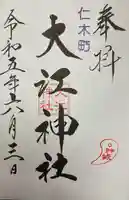 奉拝
仁木町
大江神社
令和五年六月三日